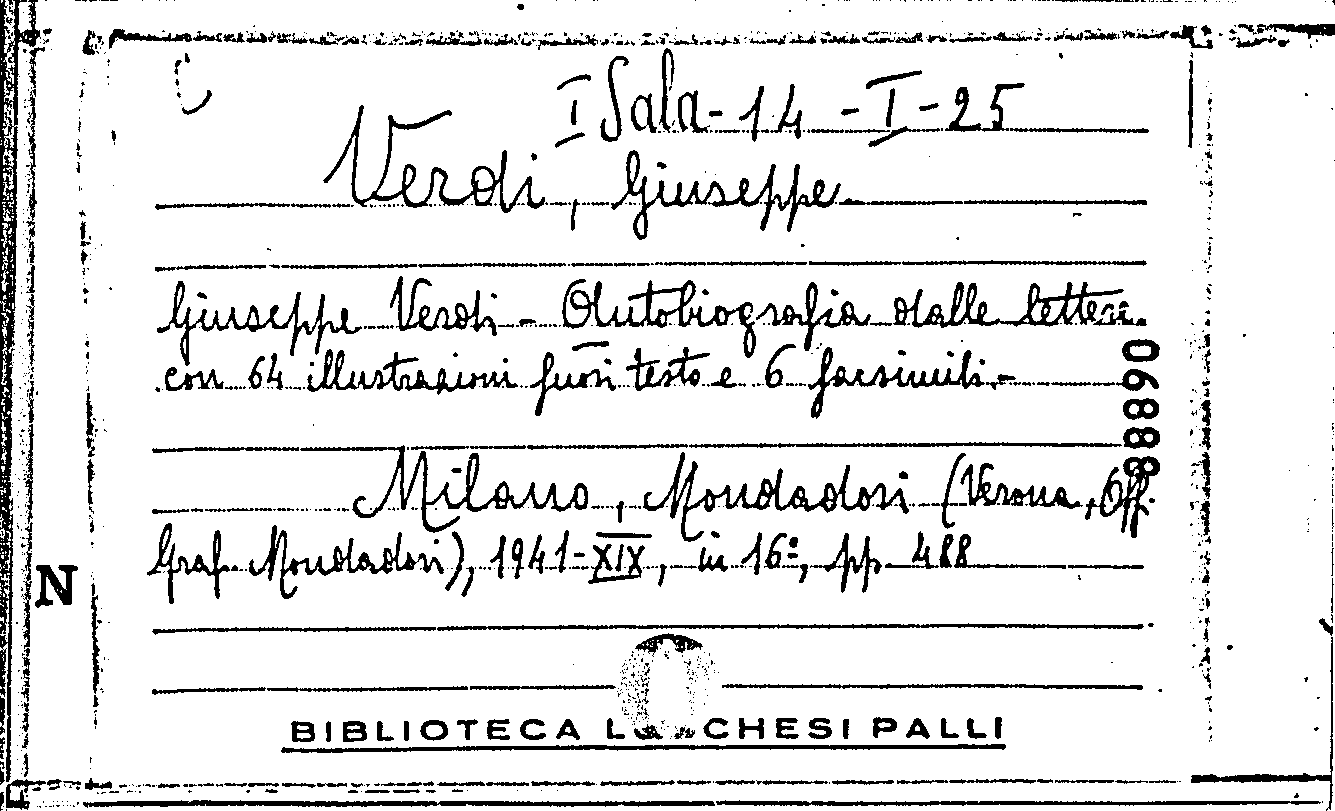 I Sala - 14 - I - 25
Verdi, Giuseppe
Giuseppe Verdi - Autobiografia dalle lettere.
con 64 illustrazioni fuori testo e 6 facsimili. -
88890
Milano, Mondadori (Verona, Off.
Graf. Mondadori), 1941-XIX, in 16º, pp. 488
N
BIBLIOTECA L CHESI PALLI